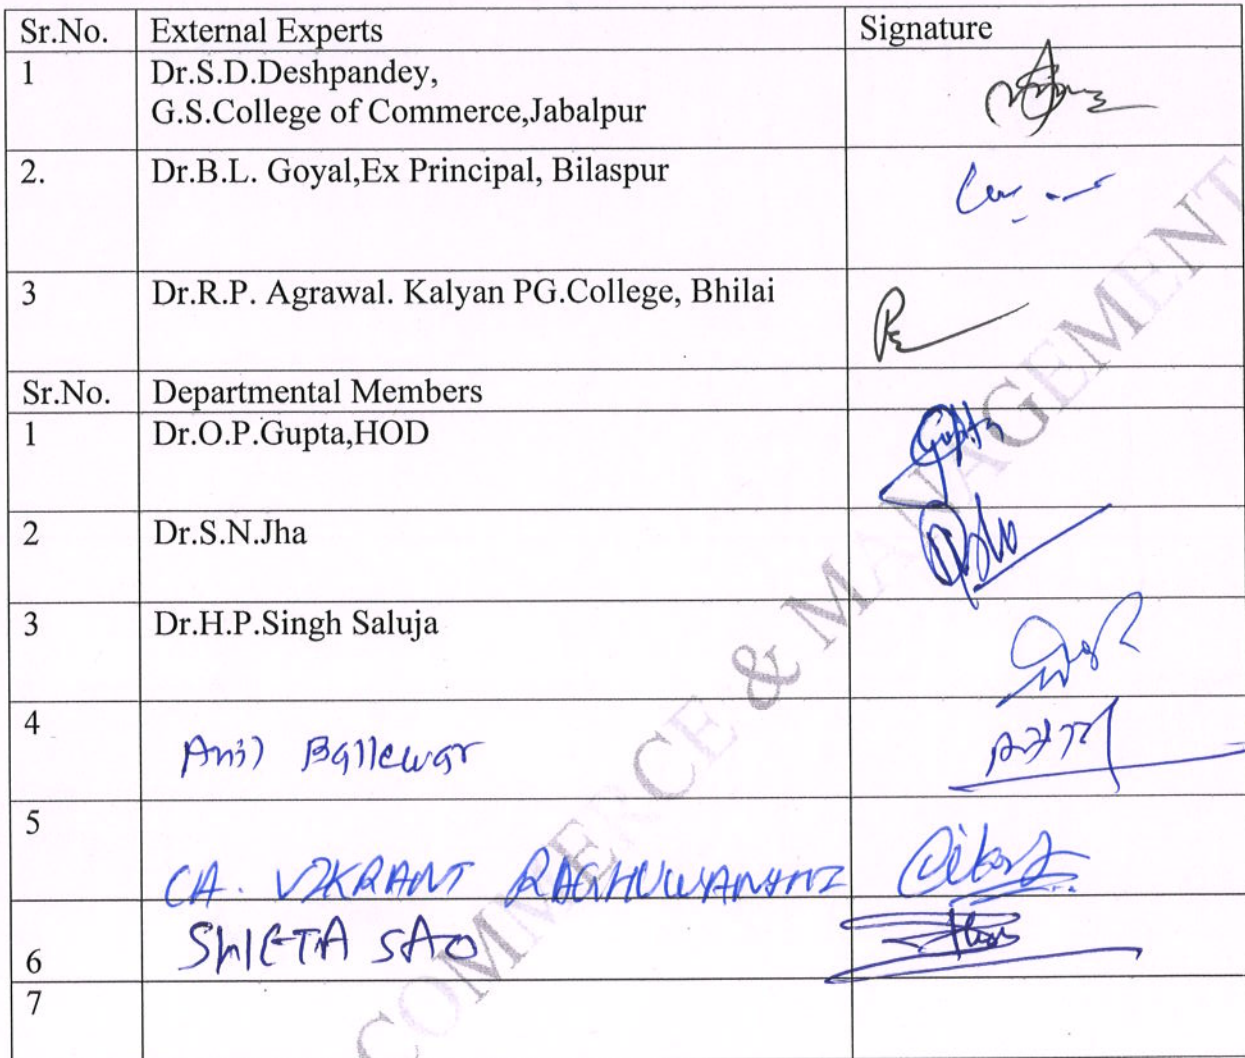 Sr.No. External Experts Signature
1 Dr.S.D.Deshpandey,
G.S.College of Commerce,Jabalpur
2. Dr.B.L. Goyal,Ex Principal, Bilaspur
3 Dr.R.P. Agrawal. Kalyan PG.College, Bhilai
Sr.No. Departmental Members
1 Dr.O.P.Gupta,HOD Gupta
2 Dr.S.N.Jha
3 Dr.H.P.Singh Saluja
4 Anil Ballewar
5 CA. VIKRANT RAGHUWANSHI
6 SHWETA SAO
7
COMMERCE & MANAGEMENT